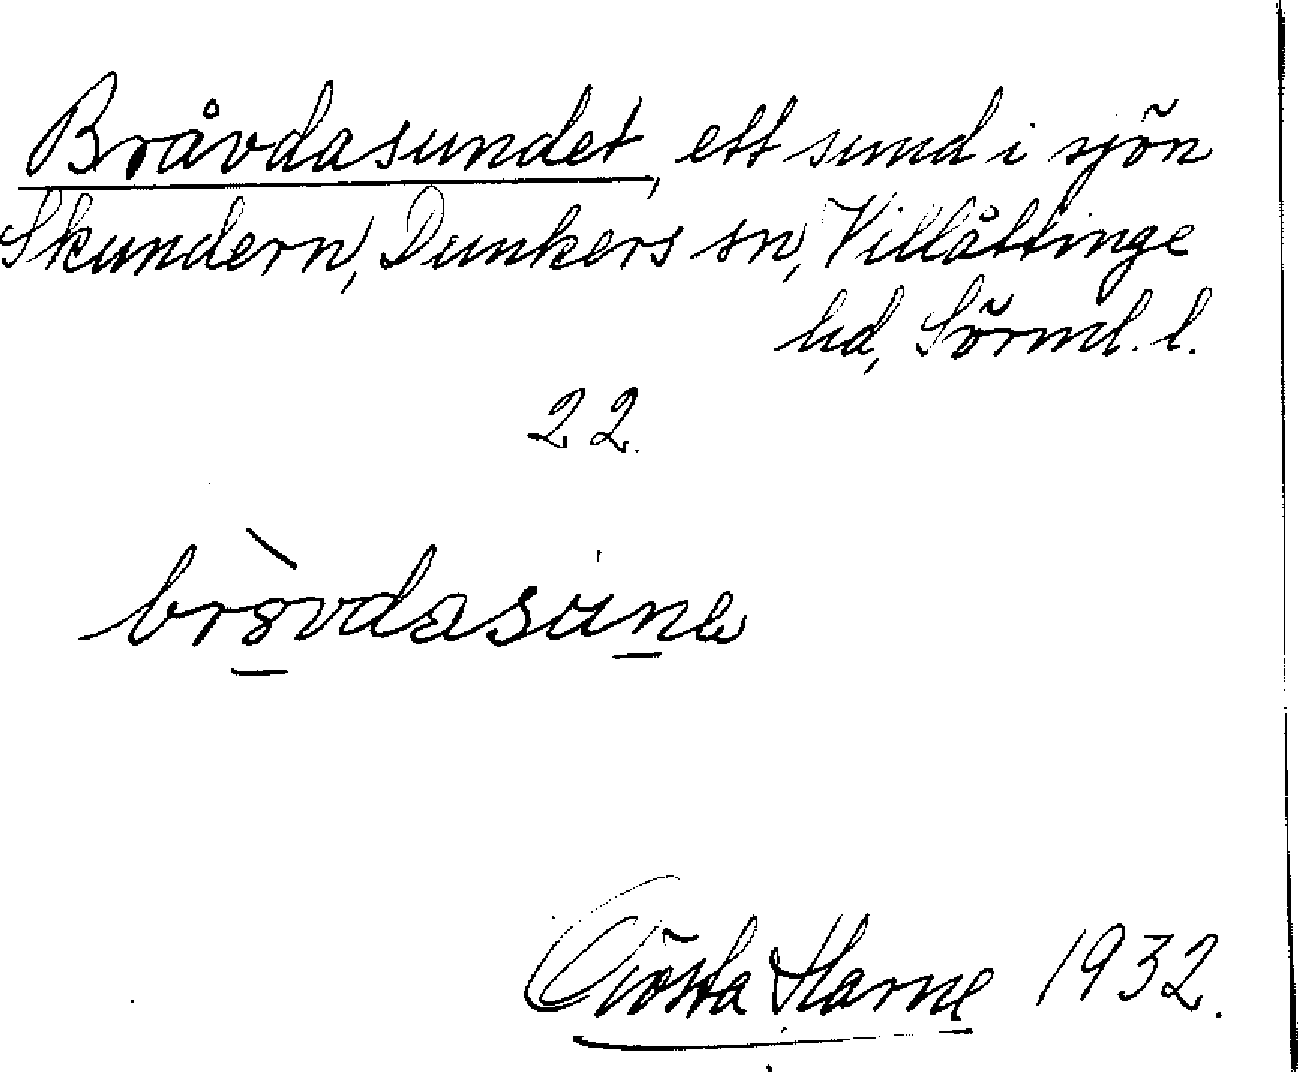 Bråvdasundet, ett sund i sjön
Skundern, Dunkers sn, Villåttinge
hd, Sörml. l.
22.
Gösta Harne 1932.